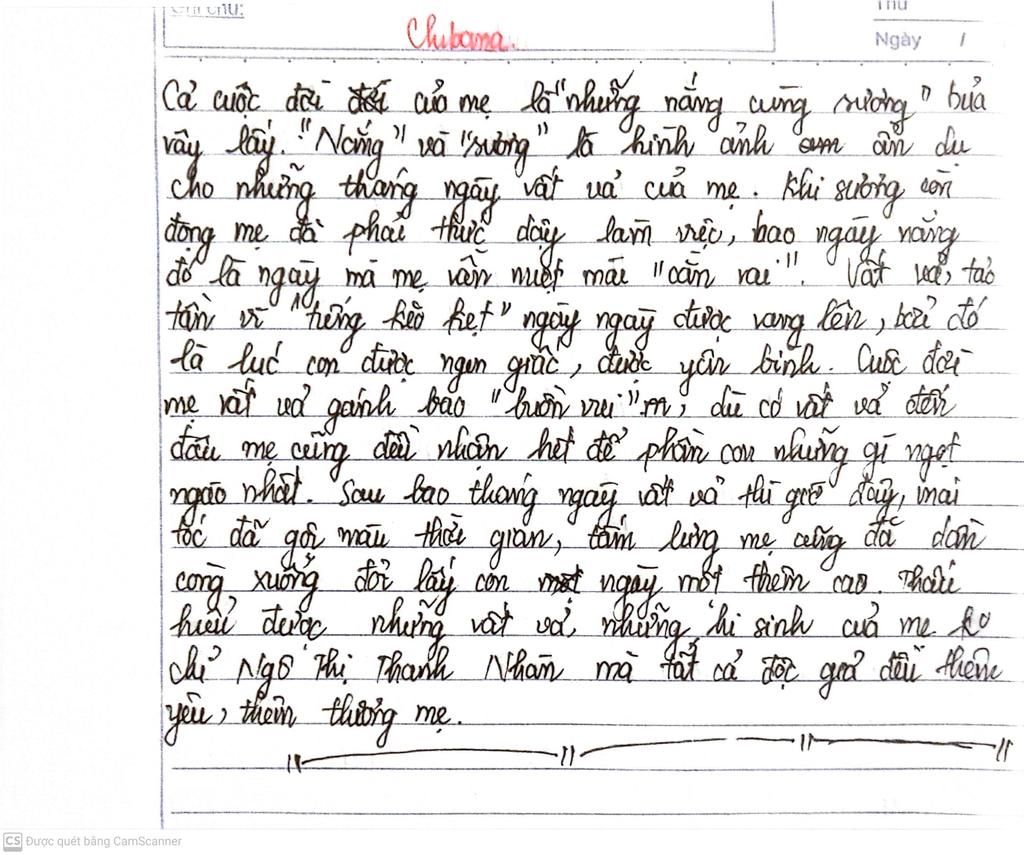 Ghi chú:
Thứ
Chibana.
Ngày /
Cả cuộc đời của mẹ là "những nắng cùng sương" bủa
vây lấy. "Nắng" và "sương" là hình ảnh ẩn dụ
cho những tháng ngày vất vả của mẹ. Khi sương còn
đọng mẹ đã phải thức dậy làm việc, bao ngày nắng
đó là ngày mà mẹ vẫn miệt mài "cằn rai". Vất vả, tảo
tần vì "tiếng kẽo kẹt" ngày ngày được vang lên, bởi đó
là lúc con được ngon giấc, được yên bình. Cuộc đời
mẹ vất vả gánh bao "buồn vui", dù có vất vả đến
đâu mẹ cũng đều nhận hết để phần con những gì ngọt
ngào nhất. Sau bao tháng ngày vất vả thì giờ đây, mái
tóc đã gội màu thời gian, tấm lưng mẹ cũng đã dần
còng xuống đổi lấy con ngày một thêm cao. Thấu
hiểu được những vất vả, những hi sinh của mẹ ko
chỉ Ngô Thị Thanh Nhàn mà tất cả độc giả đều thêm
yêu, thêm thương mẹ.
CS Được quét bằng CamScanner